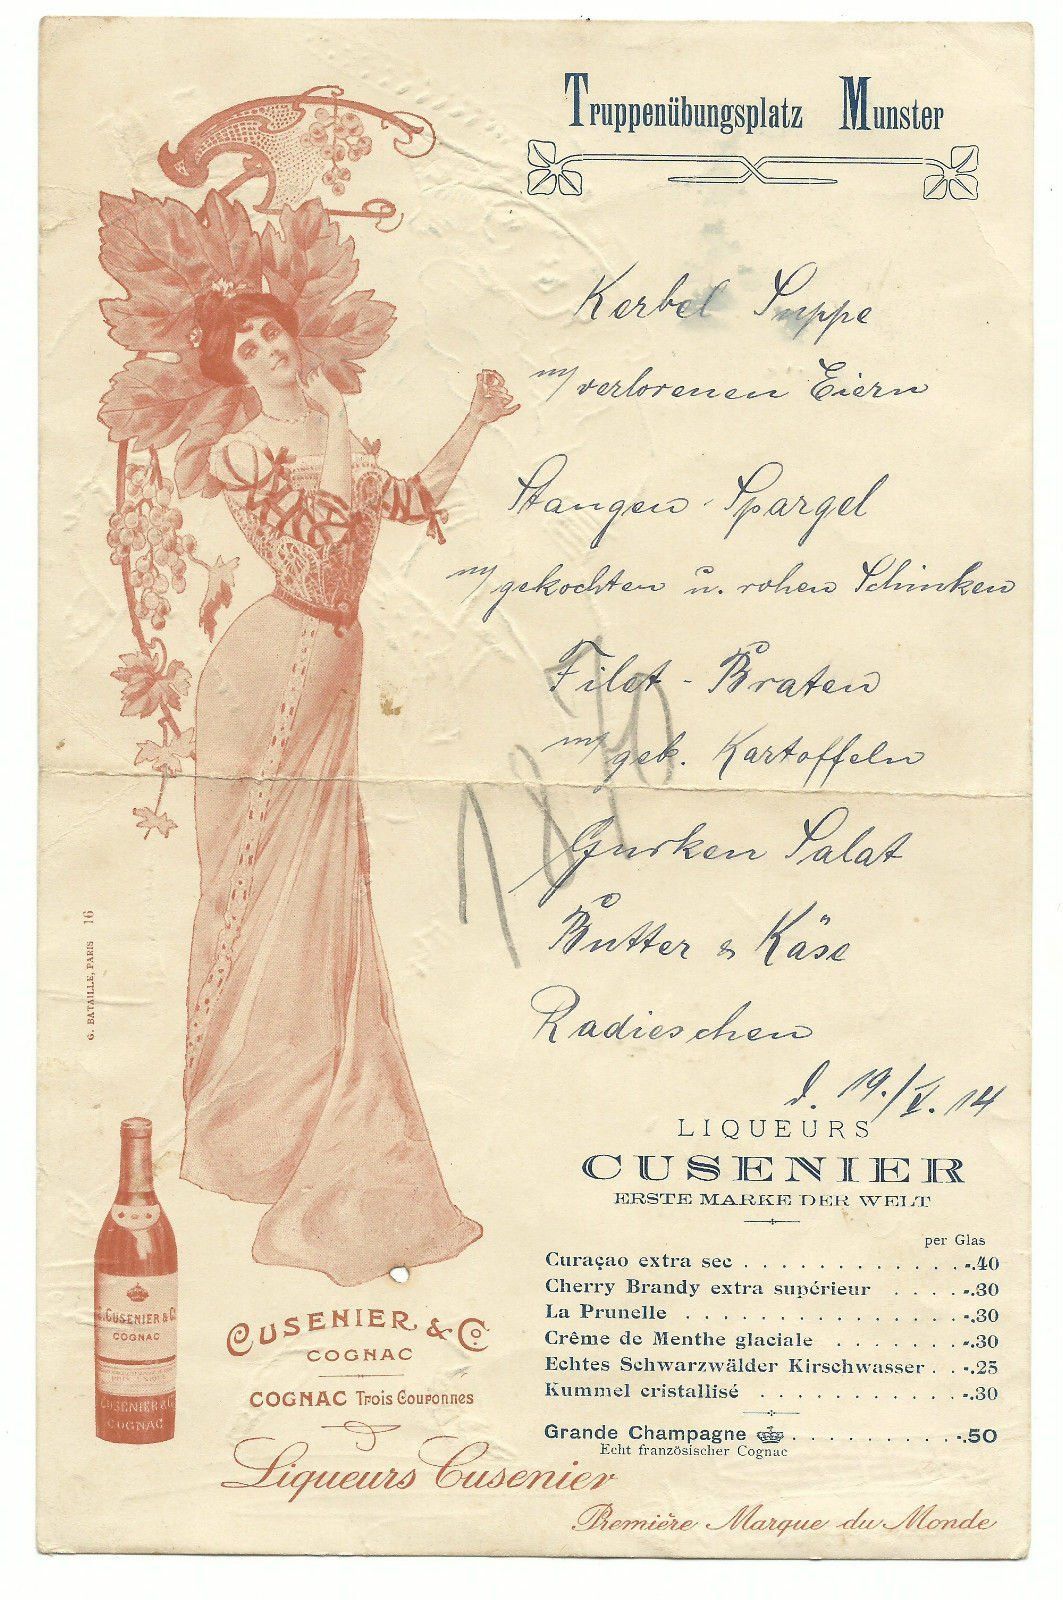 Truppenübungsplatz Munster
Kerbel Suppe
m/ verlorenen Eiern
Stangen-Spargel
m/ gekochten u. rohen Schinken
Filet-Braten
m/ geb. Kartoffeln
Gurken Salat
Butter & Käse
Radieschen
d. 19./V. 14
1870
LIQUEURS
CUSENIER
ERSTE MARKE DER WELT
per Glas
Curaçao extra sec . . . . . . . . . . . . . -.40
Cherry Brandy extra supérieur . . . . -.30
La Prunelle . . . . . . . . . . . . . . . . -.30
Crême de Menthe glaciale . . . . . . . -.30
Echtes Schwarzwälder Kirschwasser . . -.25
Kummel cristallisé . . . . . . . . . . . -.30
Grande Champagne . . . . . . . . . . -.50
Echt französischer Cognac
G. BATAILLE, PARIS 16
E. CUSENIER & Co
COGNAC
CUSENIER & Co
COGNAC
CUSENIER & Co.
COGNAC
COGNAC Trois Couronnes
Liqueurs Cusenier
Première Marque du Monde